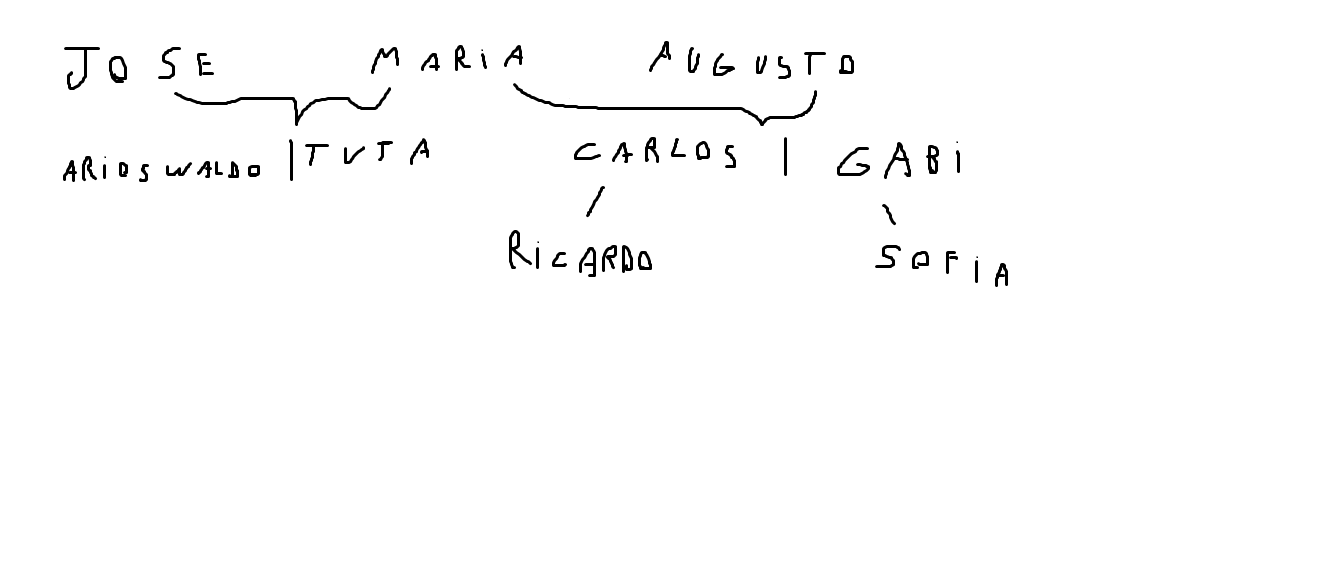 JOSE MARIA AUGUSTO
ARIOSWALDO | TUTA CARLOS | GABI
RICARDO SOFIA